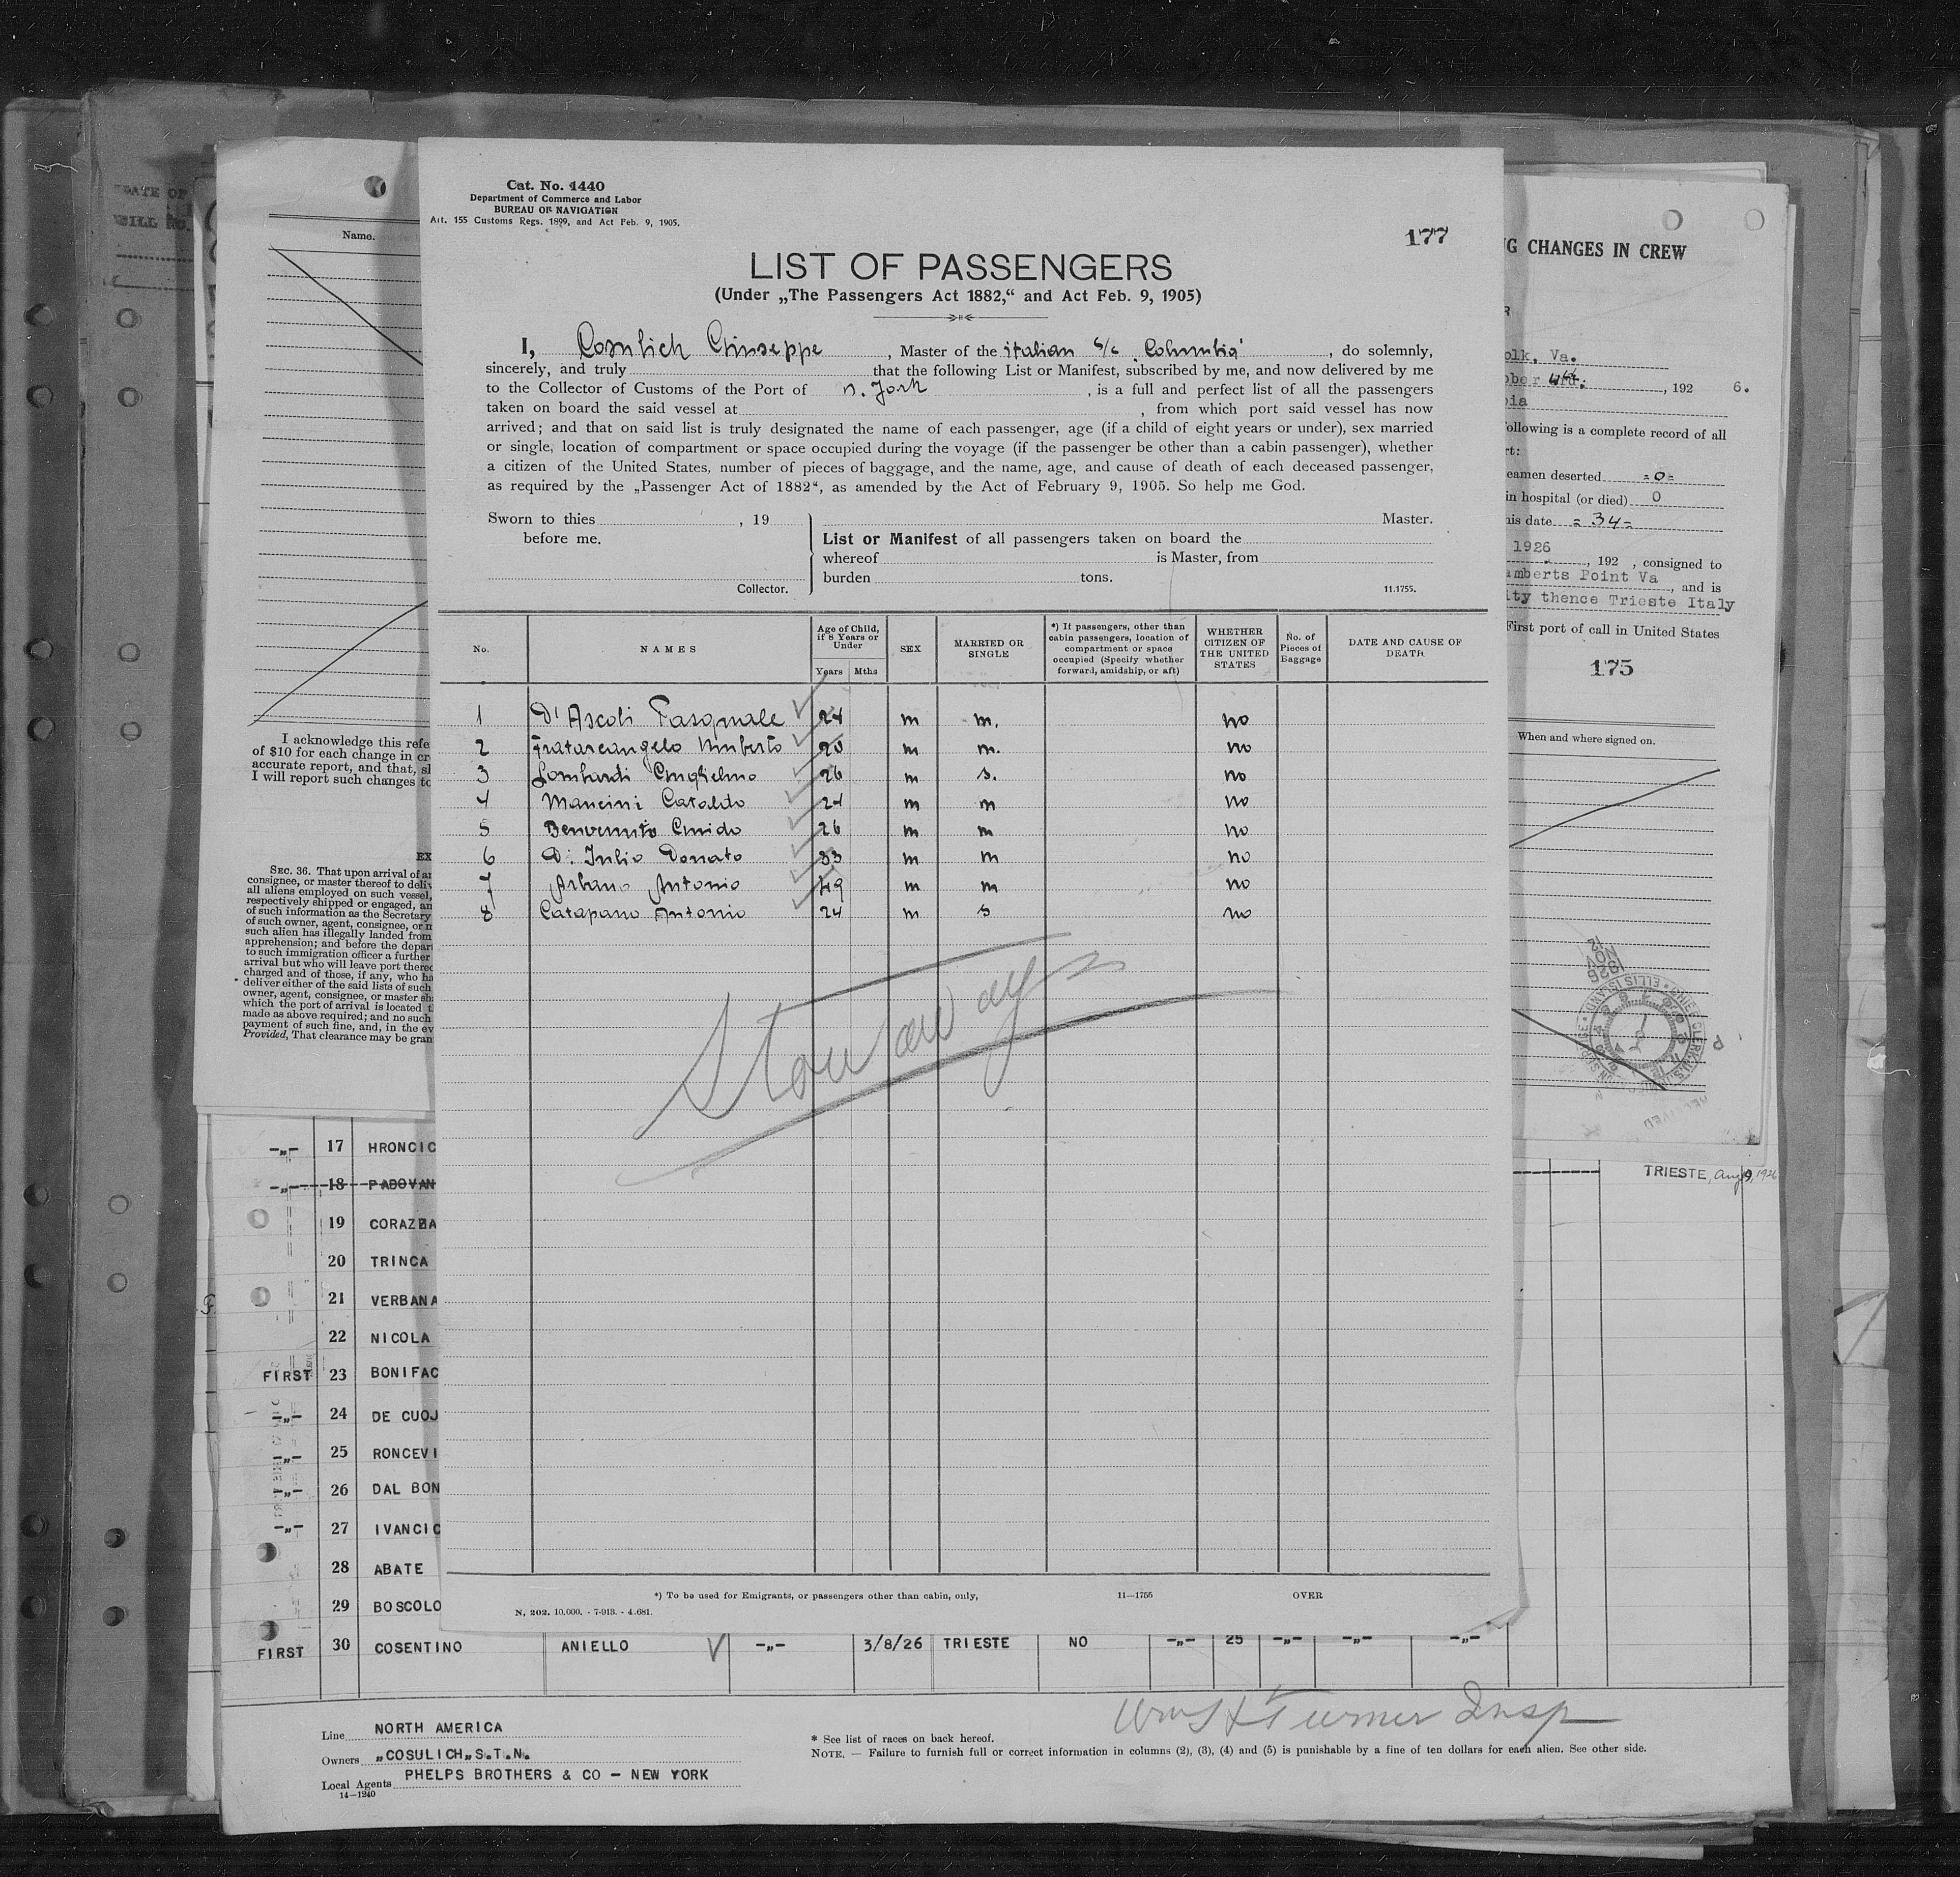 DATE OF
BILL NO.
Name.
I acknowledge this refe
of $10 for each change in cr
accurate report, and that, sl
I will report such changes to
EX
SEC. 36. That upon arrival of ar
consignee, or master thereof to deliv
all aliens employed on such vessel,
respectively shipped or engaged, an
of such information as the Secretary
of such owner, agent, consignee, or m
such alien has illegally landed from
apprehension; and before the depart
to such immigration officer a further
arrival but who will leave port thereo
charged and of those, if any, who ha
deliver either of the said lists of such
owner, agent, consignee, or master sh
which the port of arrival is located t
made as above required; and no such
payment of such fine, and, in the ev
Provided, That clearance may be gran
Cat. No. 1440
Department of Commerce and Labor
BUREAU OF NAVIGATION
Art. 155 Customs Regs. 1899, and Act Feb. 9, 1905.
177
LIST OF PASSENGERS
(Under „The Passengers Act 1882,“ and Act Feb. 9, 1905)
I, Cosulich Giuseppe, Master of the italian s/s „Columbia", do solemnly,
sincerely, and truly that the following List or Manifest, subscribed by me, and now delivered by me
to the Collector of Customs of the Port of N. York, is a full and perfect list of all the passengers
taken on board the said vessel at , from which port said vessel has now
arrived; and that on said list is truly designated the name of each passenger, age (if a child of eight years or under), sex married
or single, location of compartment or space occupied during the voyage (if the passenger be other than a cabin passenger), whether
a citizen of the United States, number of pieces of baggage, and the name, age, and cause of death of each deceased passenger,
as required by the „Passenger Act of 1882“, as amended by the Act of February 9, 1905. So help me God.
Sworn to thies , 19
before me.
Collector.
Master.
List or Manifest of all passengers taken on board the
whereof is Master, from
burden tons.
11.1755.
No. NAMES Age of Child, if 8 Years or Under Years Mths SEX MARRIED OR SINGLE *) If passengers, other than cabin passengers, location of compartment or space occupied (Specify whether forward, amidship, or aft) WHETHER CITIZEN OF THE UNITED STATES No. of Pieces of Baggage DATE AND CAUSE OF DEATH
1 D'Ascoli Pasquale 24 m m. no
2 Fratarcangelo Umberto 20 m m. no
3 Lombardi Guglielmo 26 m s. no
4 Mancini Cataldo 24 m m no
5 Benvenuto Guido 26 m m no
6 Di Iulio Donato 33 m m no
7 Arbano Antonio 49 m m no
8 Catapano Antonio 24 m s no
Stowaways
*) To be used for Emigrants, or passengers other than cabin, only,
11—1755
OVER
N. 202. 10.000. - 7-913. - 4.681.
G CHANGES IN CREW
olk, Va.
ober , 192 6.
bia
ollowing is a complete record of all
rt:
eamen deserted =0=
in hospital (or died) 0
his date = 34 =
1926
, 192 , consigned to
amberts Point Va , and is
ity thence Trieste Italy
First port of call in United States
175
When and where signed on.
12
NOV
1926
ELLIS ISLAND
CHIEF CLERK
RECEIVED
TRIESTE, Aug 9, 1926
-„- 17 HRONCIC
-„- 18 PADOVAN
19 CORAZZA
20 TRINCA
21 VERBANA
22 NICOLA
FIRST 23 BONIFAC
-„- 24 DE CUOJ
-„- 25 RONCEVI
-„- 26 DAL BON
-„- 27 IVANCIC
28 ABATE
29 BOSCOLO
FIRST 30 COSENTINO ANIELLO -„- 3/8/26 TRIESTE NO -„- 25 -„- -„- -„-
Wm H Turner Insp
Line NORTH AMERICA
Owners „COSULICH„S.T.N.
Local Agents PHELPS BROTHERS & CO - NEW YORK
14—1240
* See list of races on back hereof.
NOTE. — Failure to furnish full or correct information in columns (2), (3), (4) and (5) is punishable by a fine of ten dollars for each alien. See other side.